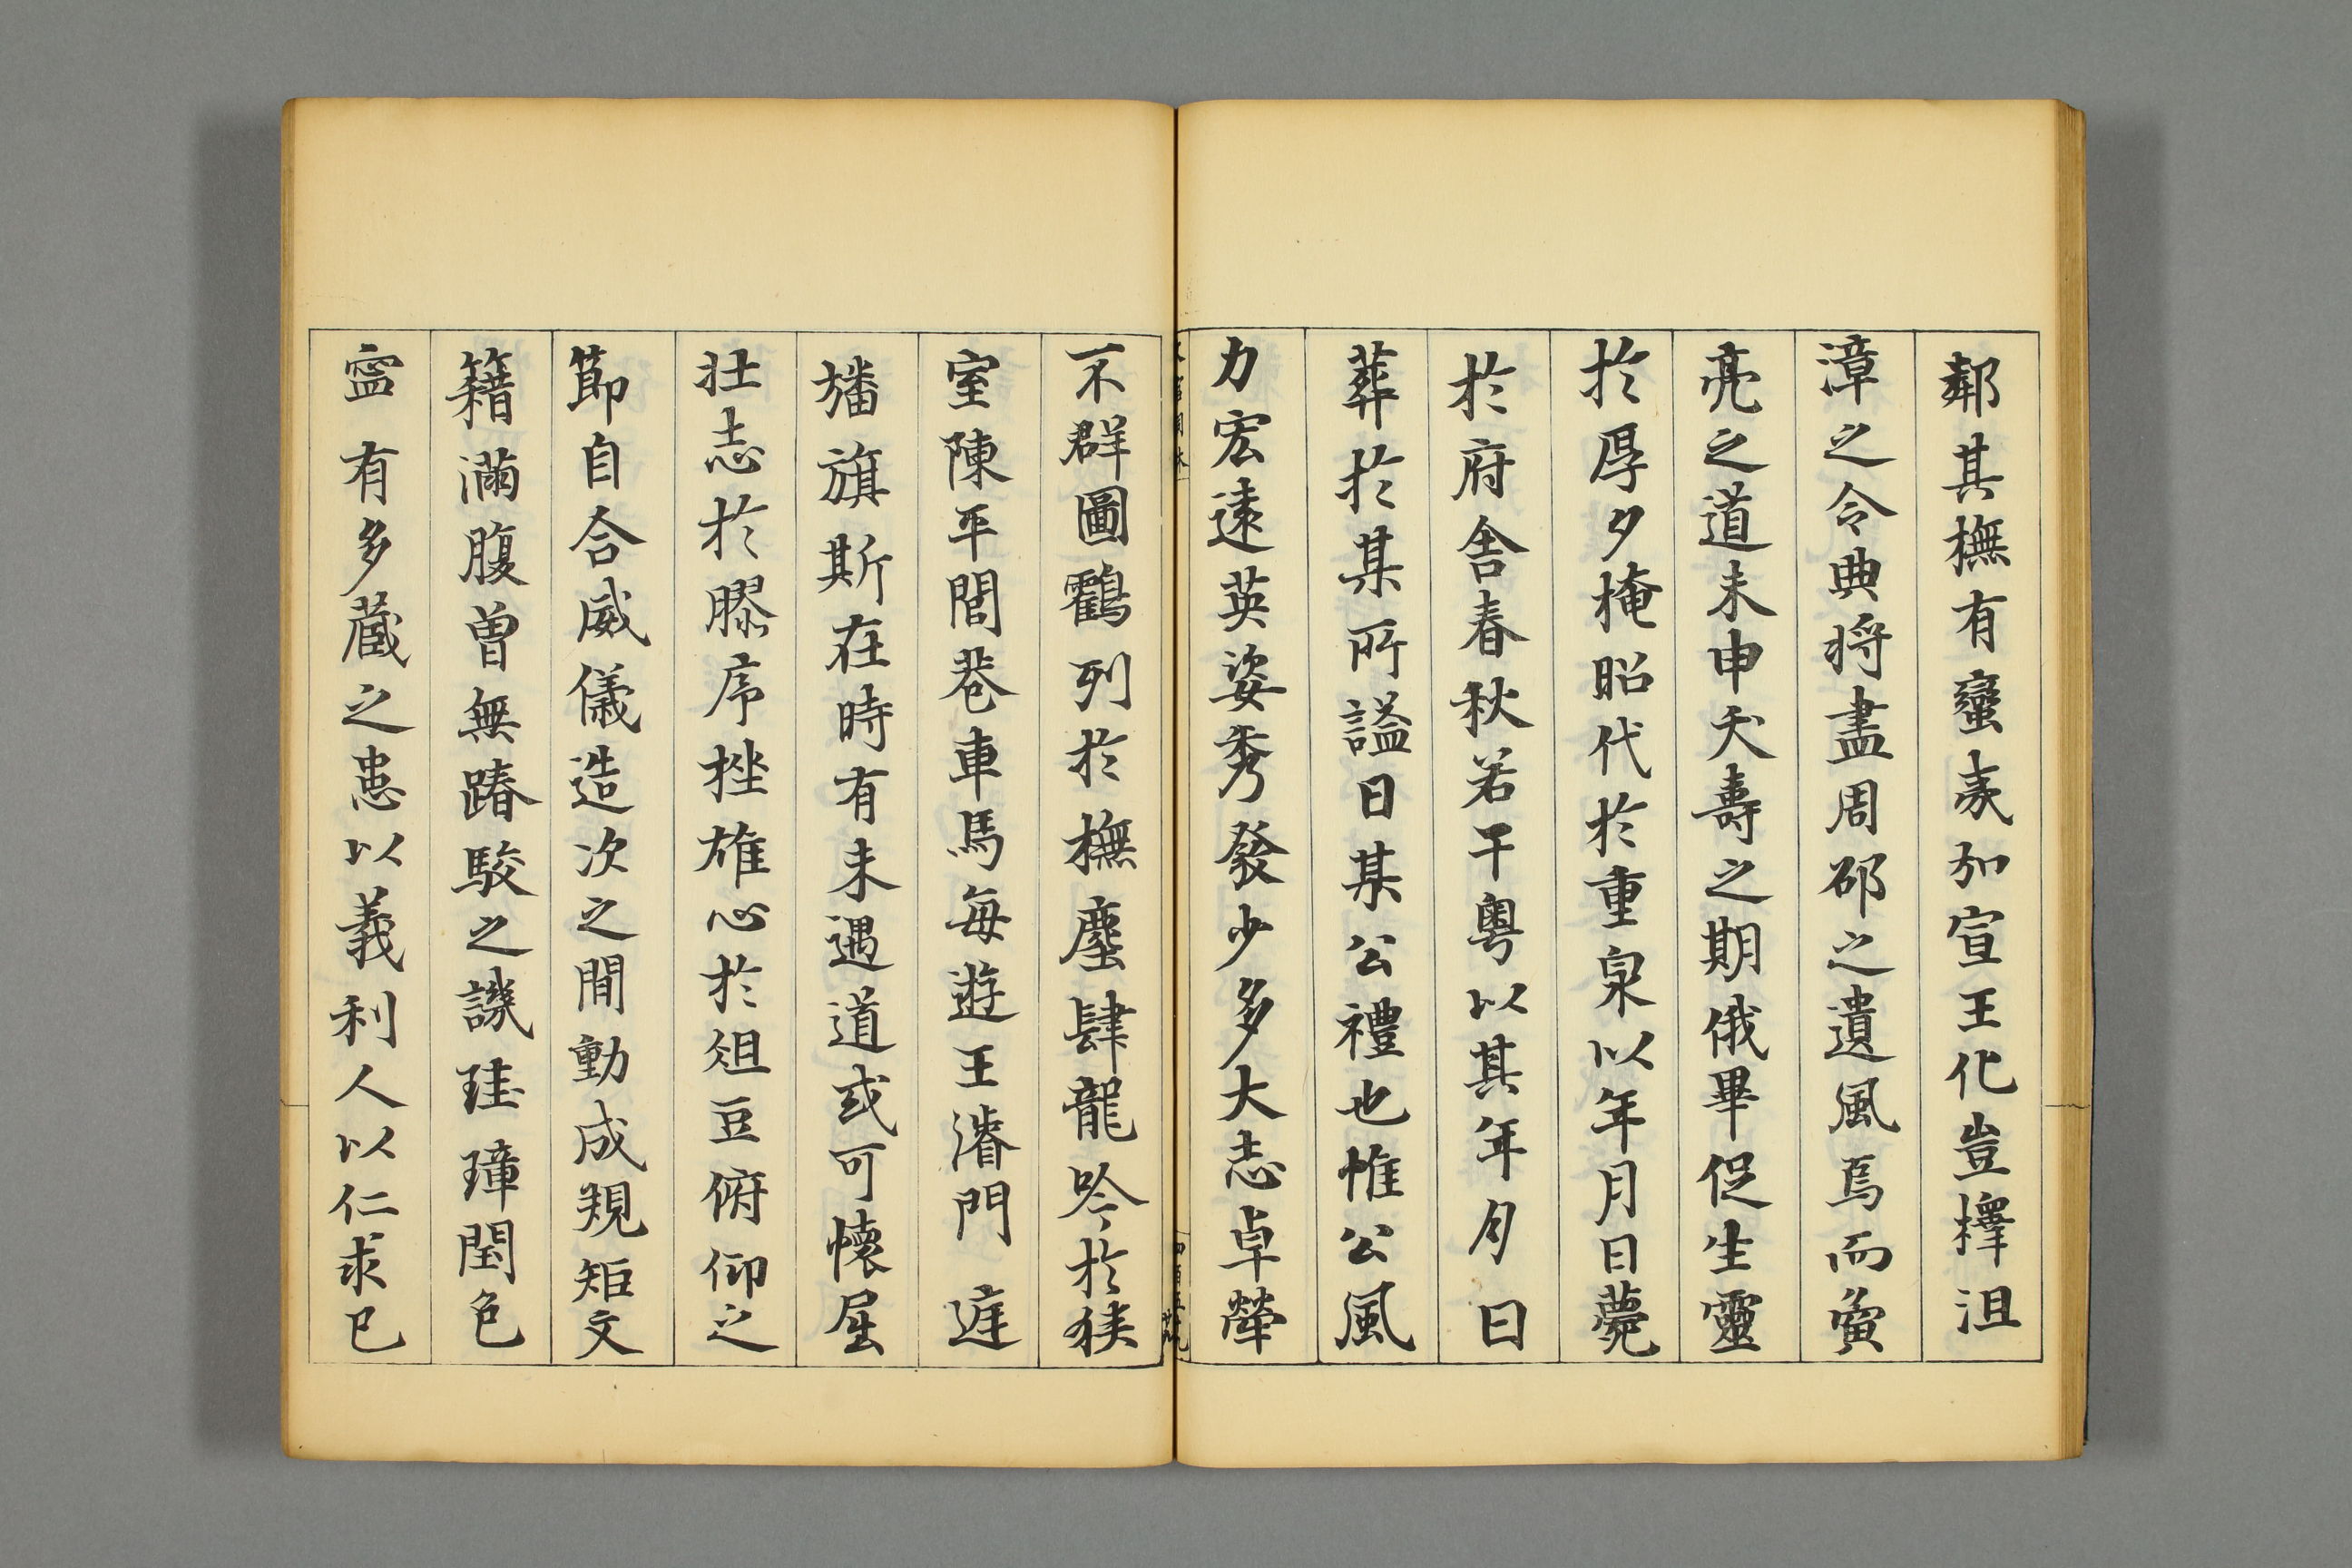 鄰其撫有蠻夷加宣王化豈擇沮
漳之令典將盡周邵之遺風焉而奠
亮之道未申夭壽之期俄畢促生靈
於厚夕掩昭代於重泉以年月日薨
於府舎春秋若干粵以其年月日
葬於某所謚曰某公禮也惟公風
力宏遠英姿秀發少多大志卓犖
不群圖鸛列於撫塵肆龍吟於狹
室陳平閭巷車馬每遊王濬門庭
旛旗斯在時有未遇道或可懷屈
壯志於膠序挫雄心於俎豆俯仰之
節自合威儀造次之間動成規矩文
籍滿腹曽無踳駮之譏珪璋閏色
寧有多蔵之患以義利人以仁求已